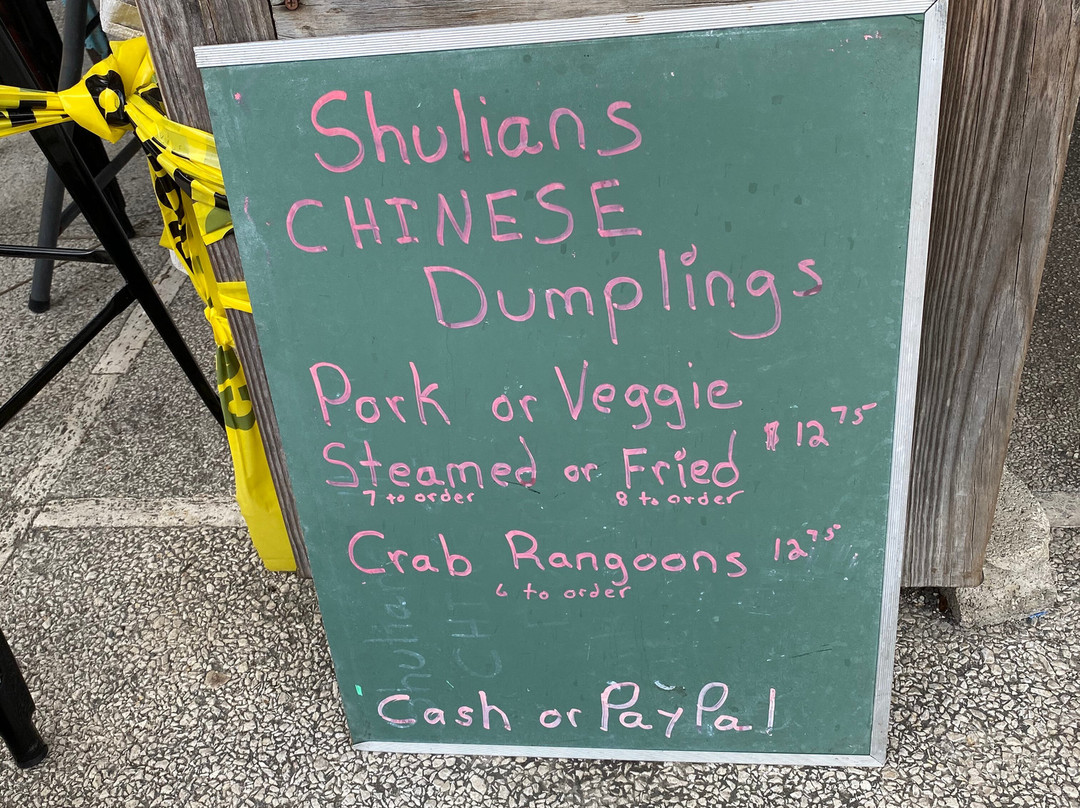 Shulians
CHINESE
Dumplings
Pork or Veggie
Steamed or Fried $12⁷⁵
7 to order 8 to order
Crab Rangoons 12⁷⁵
6 to order
Cash or PayPal